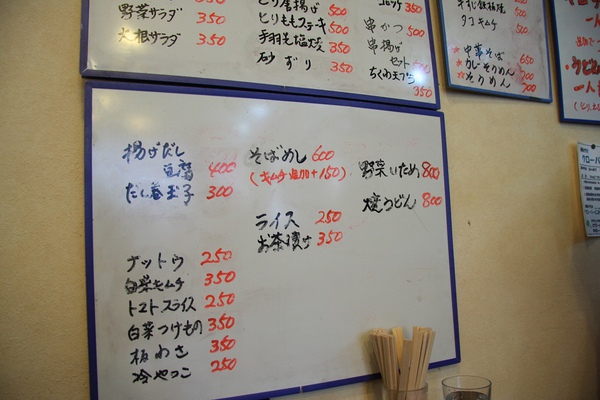 野菜サラダ 350
大根サラダ 350
とり唐揚げ 500
とりももステーキ 500
手羽先塩焼 350
砂ずり 350
コロッケ 350
串かつ 500
串揚げ
セット 500
ちくわ天ぷら
350
タコキムチ 500
中華そば 650
カレーそうめん 700
そうめん 500
揚げだし
豆腐 400
だし巻玉子 300
ナットウ 250
白菜キムチ 350
トマトスライス 250
白菜つけもの 350
板わさ 350
冷やっこ 250
そばめし 600
(キムチ追加+150)
ライス 250
お茶漬け 350
野菜いため 800
焼うどん 800
一人
うどん
一人